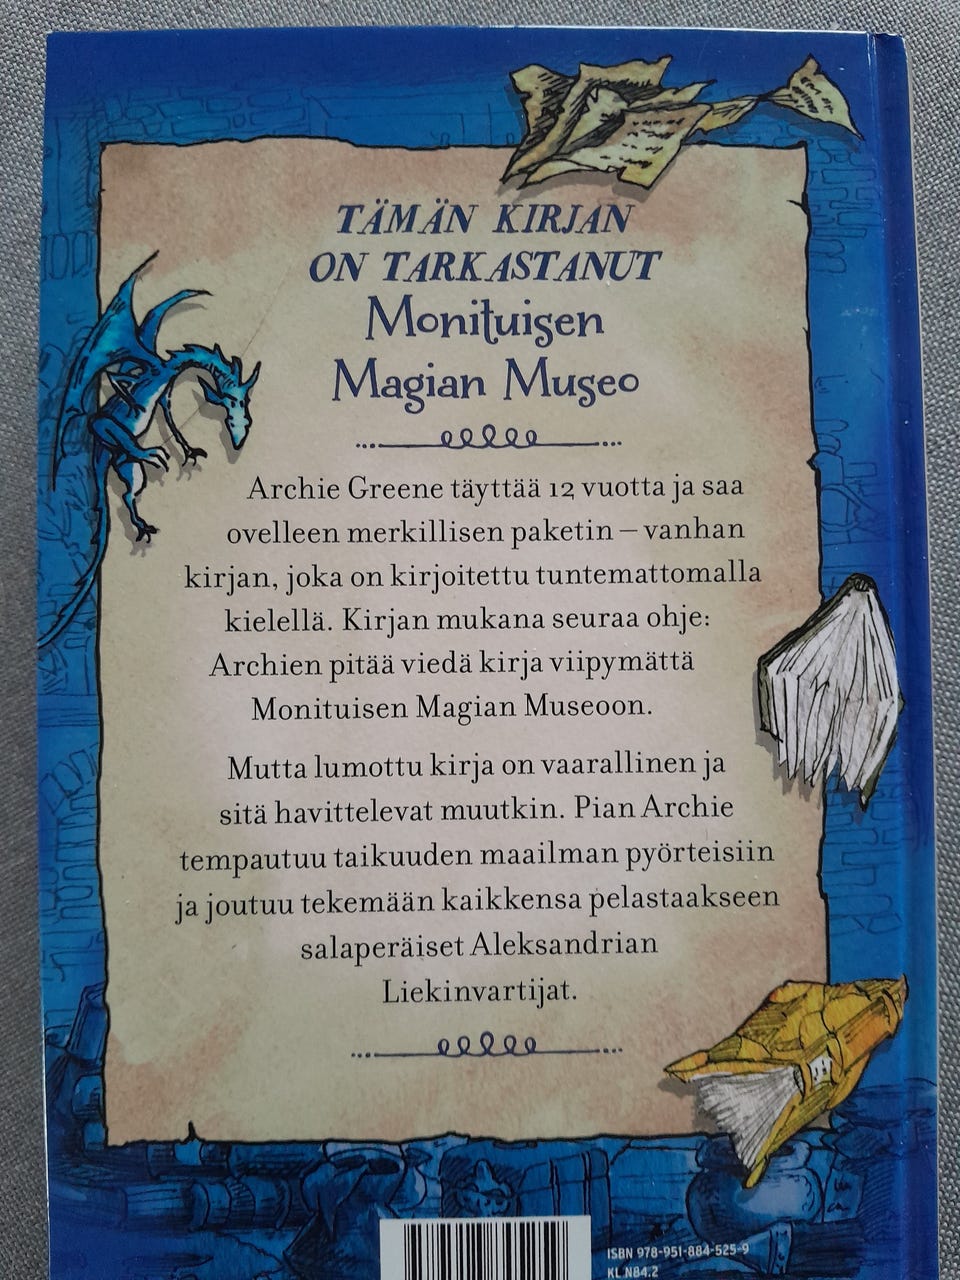 TÄMÄN KIRJAN
ON TARKASTANUT
Monituisen
Magian Museo
Archie Greene täyttää 12 vuotta ja saa
ovelleen merkillisen paketin – vanhan
kirjan, joka on kirjoitettu tuntemattomalla
kielellä. Kirjan mukana seuraa ohje:
Archien pitää viedä kirja viipymättä
Monituisen Magian Museoon.
Mutta lumottu kirja on vaarallinen ja
sitä havittelevat muutkin. Pian Archie
tempautuu taikuuden maailman pyörteisiin
ja joutuu tekemään kaikkensa pelastaakseen
salaperäiset Aleksandrian
Liekinvartijat.
ISBN 978-951-884-525-9
KL N84.2